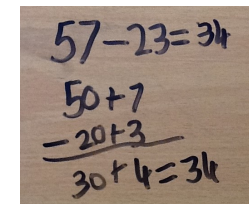 57-23=34
50+7
-20+3
30+4=34